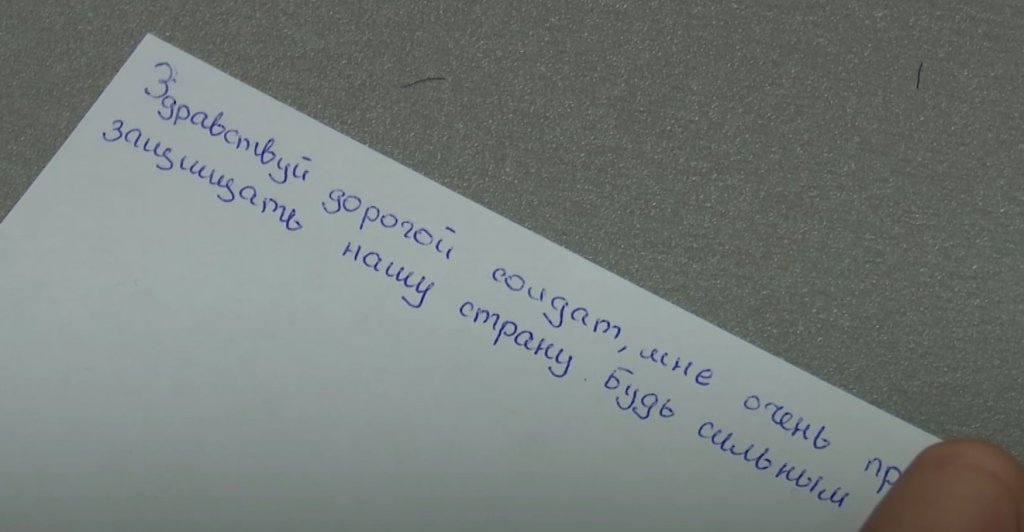 Здравствуй дорогой солдат, мне очень пр
защищать нашу страну. Будь сильным